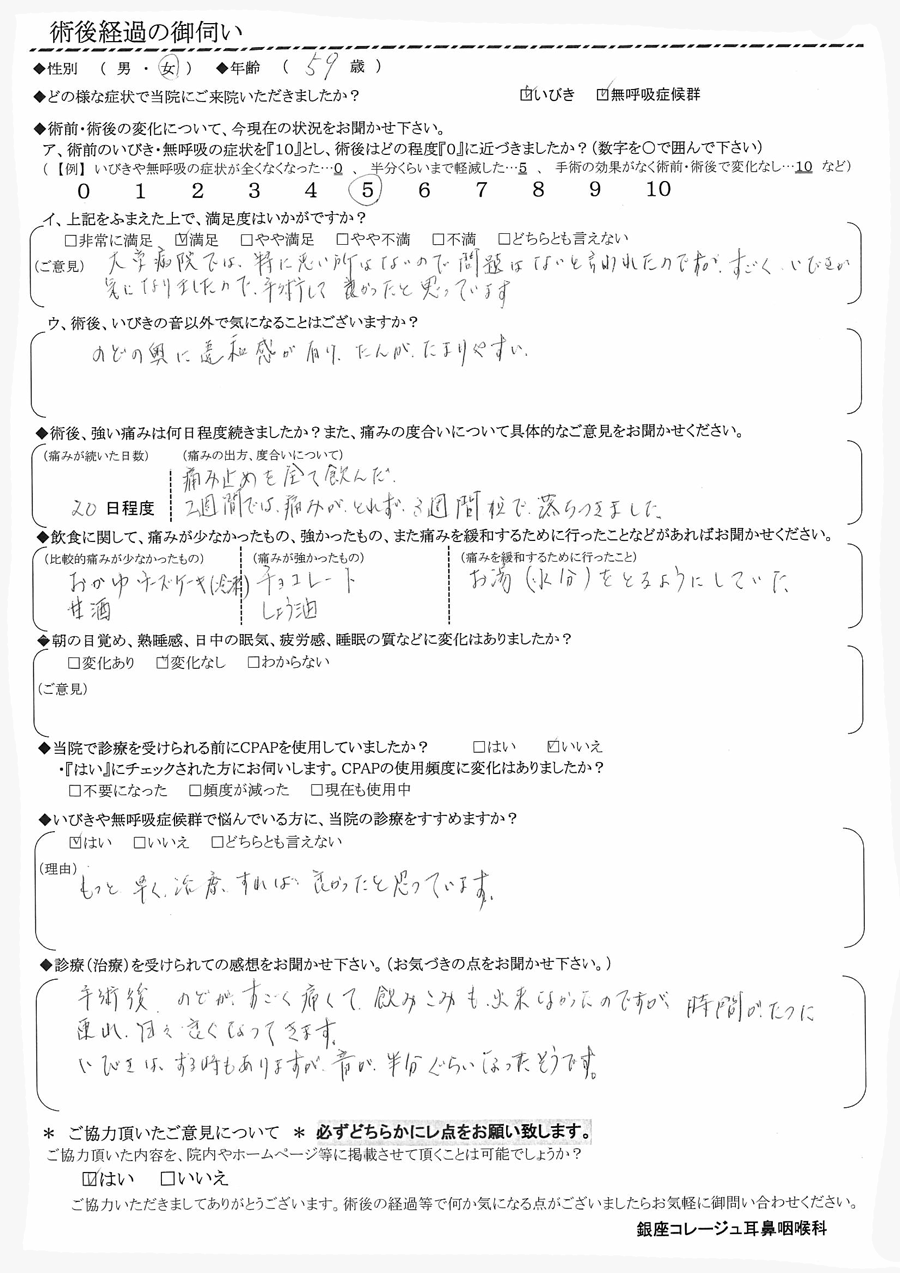 術後経過の御伺い
◆性別 （ 男 ・ 女 ） ◆年齢 （ 59 歳 ）
◆どの様な症状で当院にご来院いただきましたか？ ☑いびき ☑無呼吸症候群
◆術前・術後の変化について、今現在の状況をお聞かせ下さい。
ア、術前のいびき・無呼吸の症状を『10』とし、術後はどの程度『0』に近づきましたか？（数字を〇で囲んで下さい）
（【例】 いびきや無呼吸の症状が全くなくなった…0 、 半分くらいまで軽減した…5 、 手術の効果がなく術前・術後で変化なし…10 など）
0 1 2 3 4 5 6 7 8 9 10
イ、上記をふまえた上で、満足度はいかがですか？
□非常に満足 ☑満足 □やや満足 □やや不満 □不満 □どちらとも言えない
（ご意見） 大学病院では、特に悪い所はないので問題はないと言われたのですが、すごく、いびきが
気になりましたので、手術して良かったと思っています
ウ、術後、いびきの音以外で気になることはございますか？
のどの奥に違和感が有り、たんが、たまりやすい、
◆術後、強い痛みは何日程度続きましたか？また、痛みの度合いについて具体的なご意見をお聞かせください。
（痛みが続いた日数） （痛みの出方、度合いについて）
痛み止めを全て飲んだ。
20 日程度 2週間では、痛みが、とれず、3週間位で、落ちつきました
◆飲食に関して、痛みが少なかったもの、強かったもの、また痛みを緩和するために行ったことなどがあればお聞かせください。
（比較的痛みが少なかったもの） （痛みが強かったもの） （痛みを緩和するために行ったこと）
おかゆ チーズケーキ チョコレート お湯（水分）をとるようにしていた
甘酒 しょう油
◆朝の目覚め、熟睡感、日中の眠気、疲労感、睡眠の質などに変化はありましたか？
□変化あり ☑変化なし □わからない
（ご意見）
◆当院で診療を受けられる前にCPAPを使用していましたか？ □はい ☑いいえ
・『はい』にチェックされた方にお伺いします。CPAPの使用頻度に変化はありましたか？
□不要になった □頻度が減った □現在も使用中
◆いびきや無呼吸症候群で悩んでいる方に、当院の診療をすすめますか？
☑はい □いいえ □どちらとも言えない
（理由）
もっと早く、治療、すれば良かったと思っています。
◆診療（治療）を受けられての感想をお聞かせ下さい。（お気づきの点をお聞かせ下さい。）
手術後、のどが、すごく痛くて、飲みこみも、出来なかったのですが、時間が、たつに
連れ、日々良くなってきます。
いびきは、する時もありますが、音が、半分ぐらいになったそうです。
＊ ご協力頂いたご意見について ＊ 必ずどちらかにレ点をお願い致します。
ご協力頂いた内容を、院内やホームページ等に掲載させて頂くことは可能でしょうか？
☑はい □いいえ
ご協力いただきましてありがとうございます。術後の経過等で何か気になる点がございましたらお気軽に御問い合わせください。
銀座コレージュ耳鼻咽喉科